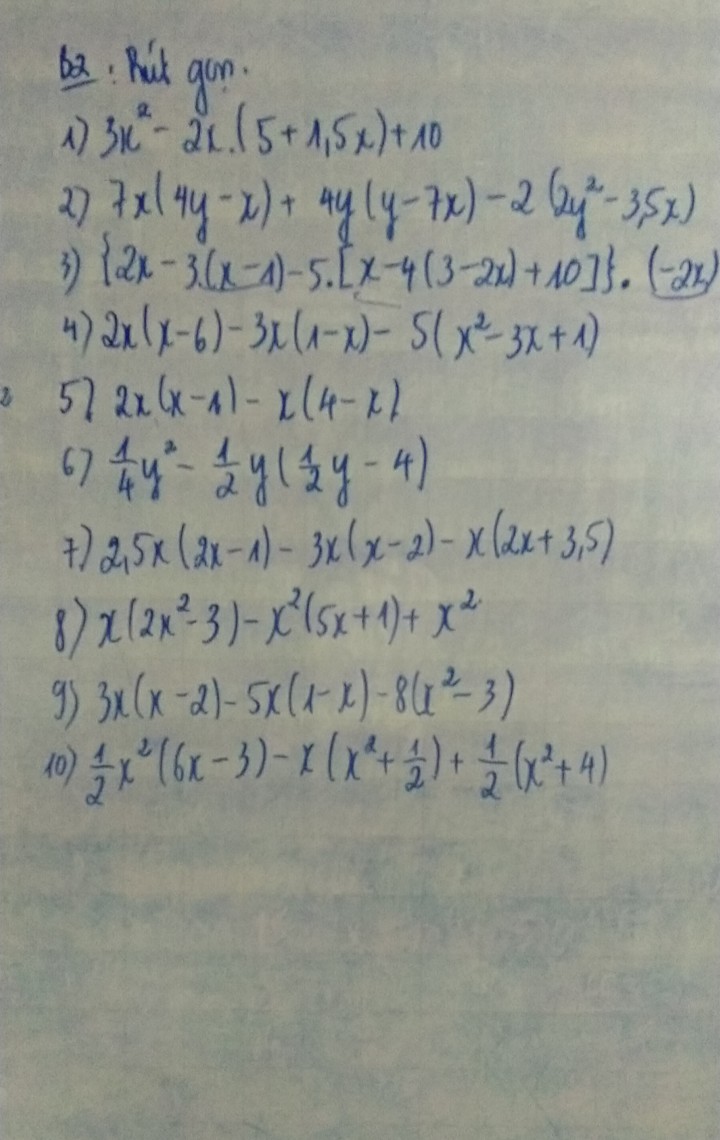 B2 : Rút gọn.
1) 3x² - 2x.(5 + 1,5x) + 10
2) 7x(4y - x) + 4y(y - 7x) - 2(2y² - 3,5x)
3) {2x - 3.(x - 1) - 5.[x - 4(3 - 2x) + 10]}.(-2x)
4) 2x(x - 6) - 3x(1 - x) - 5(x² - 3x + 1)
5) 2x(x - 1) - x(4 - x)
6) 1/4 y² - 1/2 y(1/2 y - 4)
7) 2,5x(2x - 1) - 3x(x - 2) - x(2x + 3,5)
8) x(2x² - 3) - x²(5x + 1) + x²
9) 3x(x - 2) - 5x(1 - x) - 8(x² - 3)
10) 1/2 x²(6x - 3) - x(x² + 1/2) + 1/2(x² + 4)